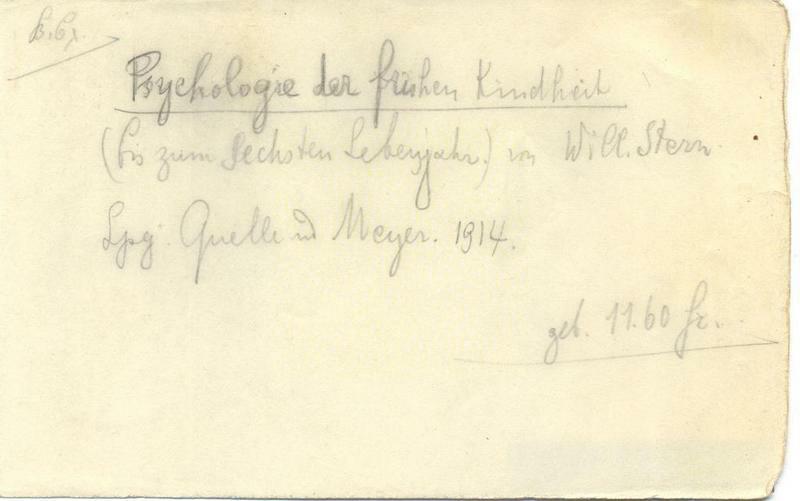 Psychologie der frühen Kindheit
(bis zum sechsten Lebensjahr.) von Will. Stern
Lpzg. Quelle und Meyer. 1914.
geb. 11.60 Fr.